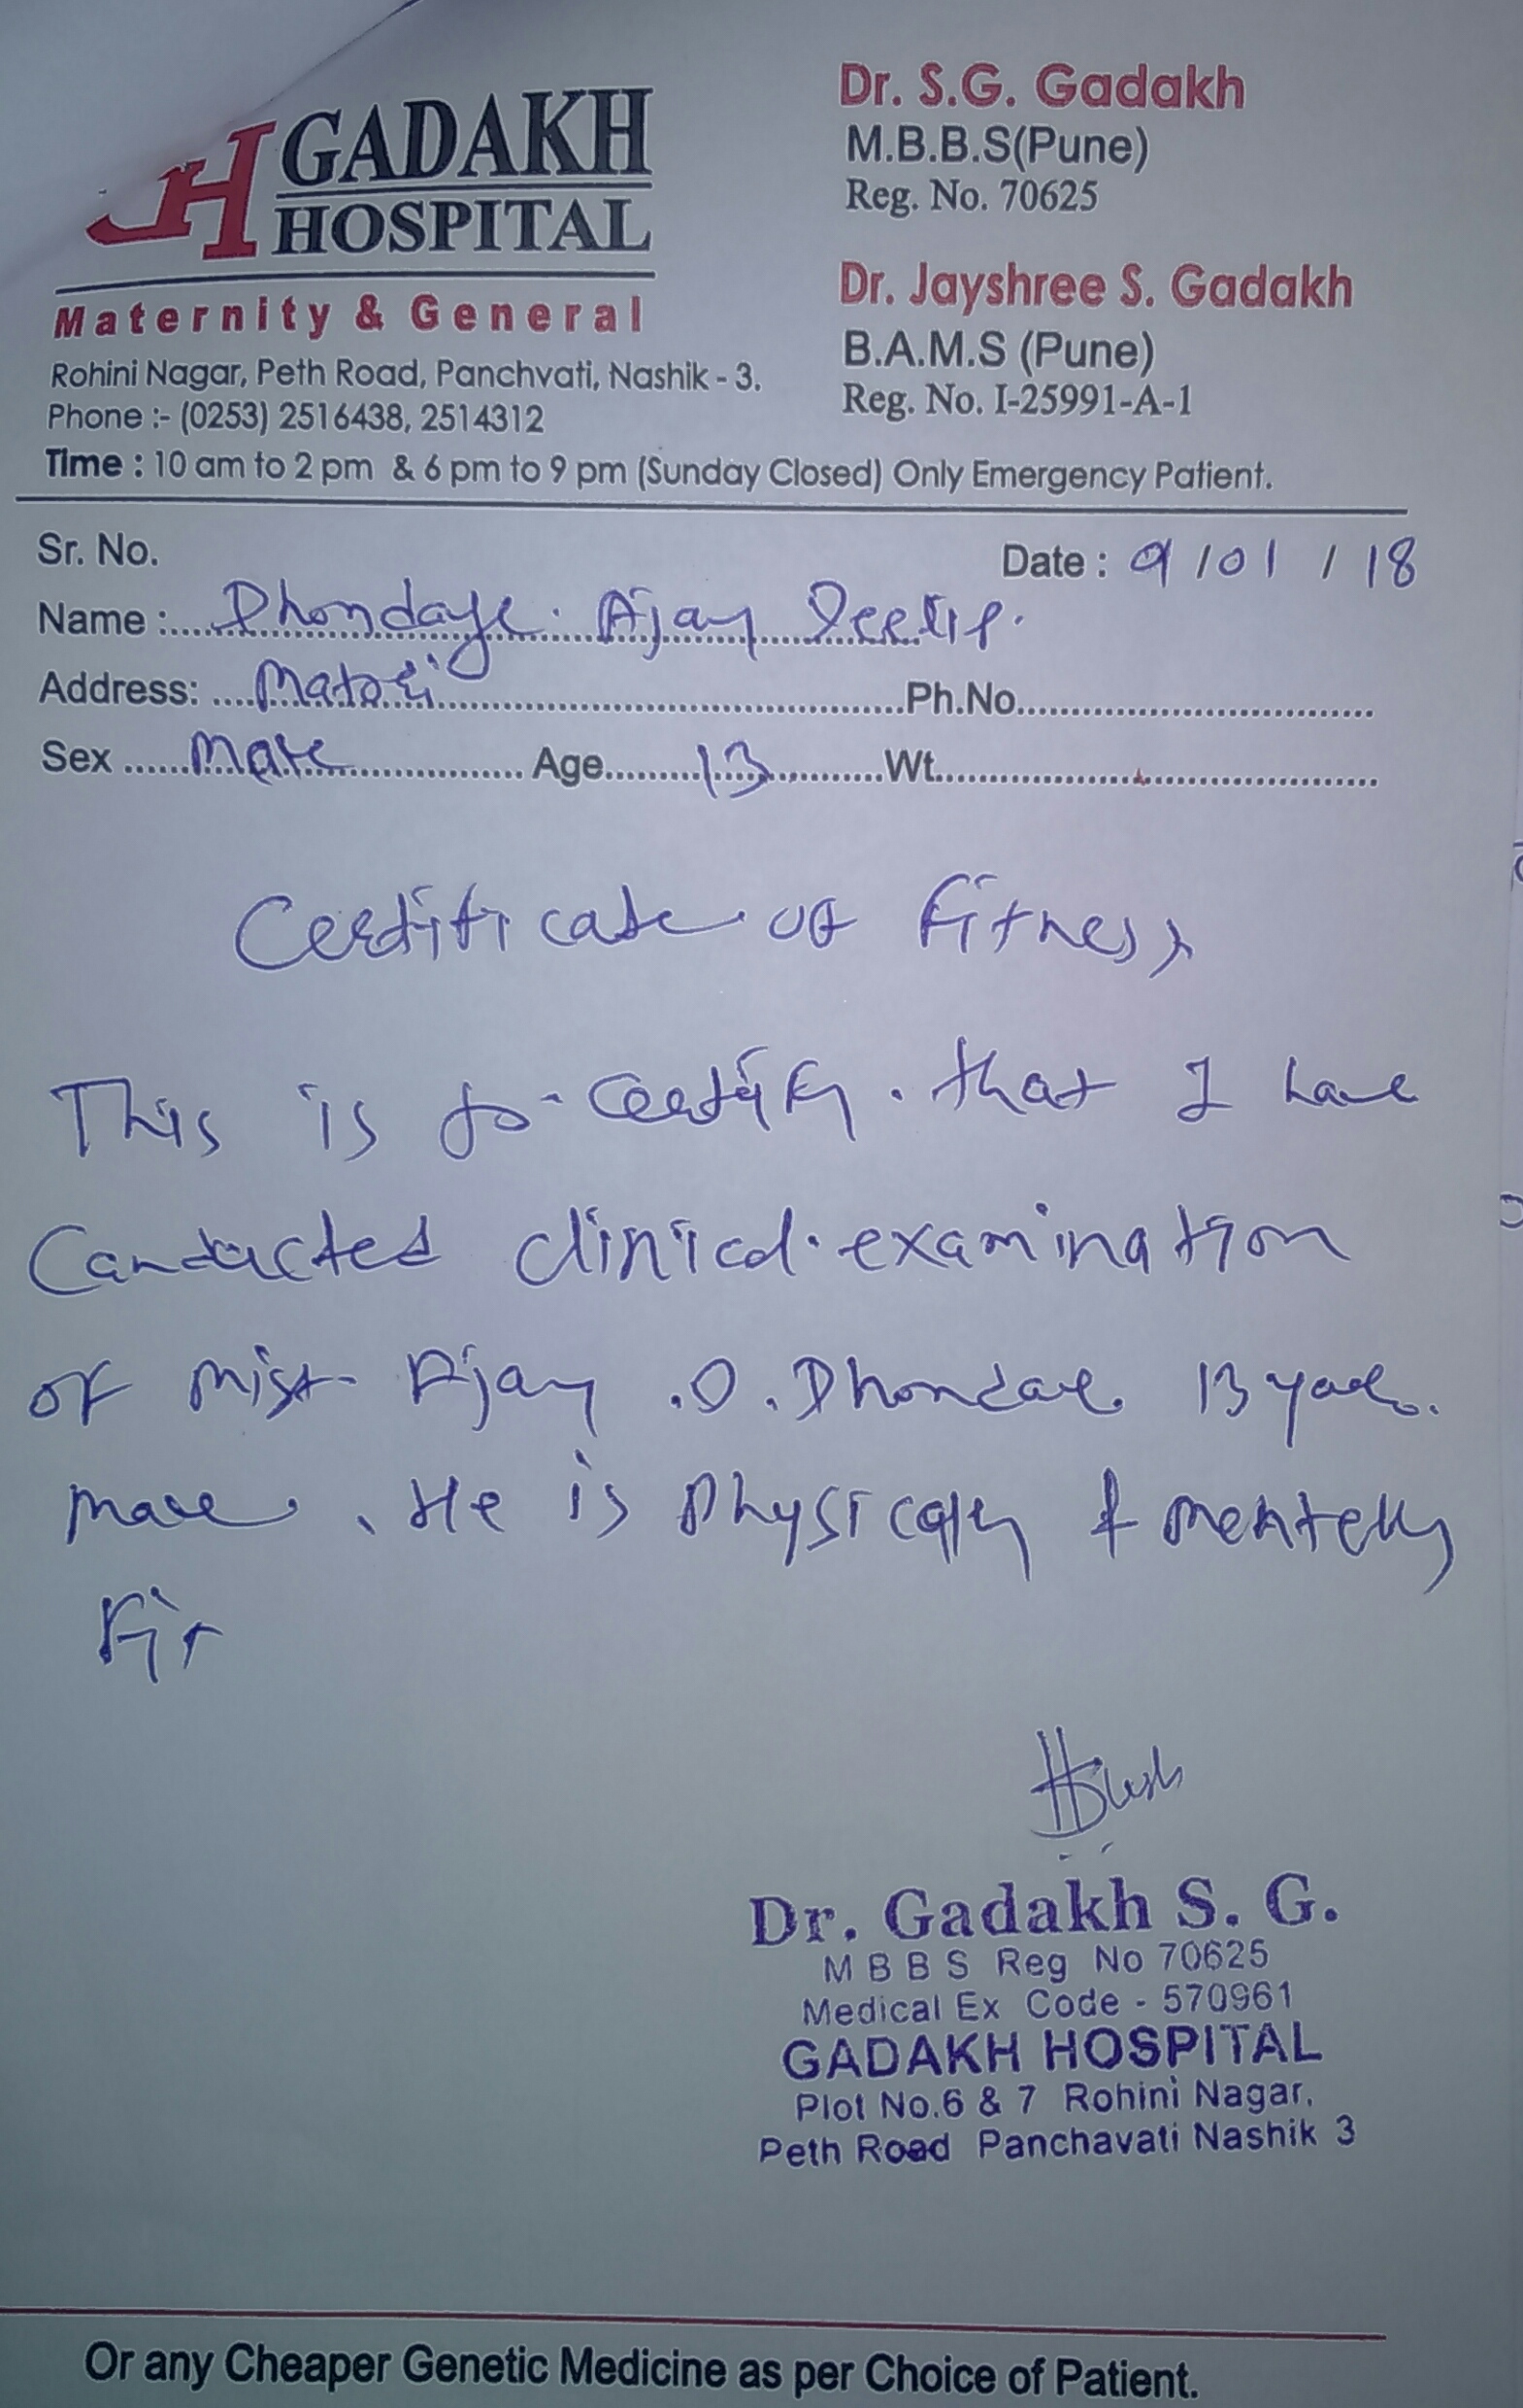 GADAKH
HOSPITAL
Maternity & General
Rohini Nagar, Peth Road, Panchvati, Nashik - 3.
Phone :- (0253) 2516438, 2514312
Time : 10 am to 2 pm & 6 pm to 9 pm (Sunday Closed) Only Emergency Patient.
Dr. S.G. Gadakh
M.B.B.S(Pune)
Reg. No. 70625
Dr. Jayshree S. Gadakh
B.A.M.S (Pune)
Reg. No. I-25991-A-1
Sr. No.
Date : 9/01/18
Name : Dhondage Ajay Deelip.
Address: Matori Ph.No.
Sex Male Age 13 Wt.
Certificate of Fitness
This is to certify that I have
Conducted clinical examination
of Mist Ajay .D. Dhondage 13 years
male. He is physically & mentally
Fit
Dr. Gadakh S. G.
M B B S Reg No 70625
Medical Ex Code - 570961
GADAKH HOSPITAL
Plot No.6 & 7 Rohini Nagar,
Peth Road Panchavati Nashik 3
Or any Cheaper Genetic Medicine as per Choice of Patient.